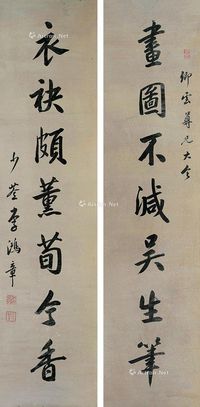 卿雲尊兄大令
畫圖不減吳生筆
衣袂頗薰荀令香
少荃李鴻章